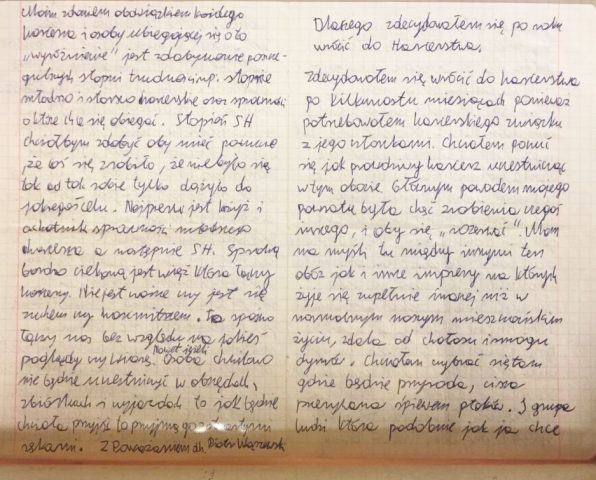 Moim zdaniem obowiązkiem każdego
harcerza i osoby ubiegającej się o to
„wyróżnienie" jest zdobywanie poszcze-
gólnych stopni trudności np. stopnie
młodzika i starsze harcerskie oraz sprawności
o które chcę się ubiegać. Stopień SH
chciałbym zdobyć aby mieć poczucie
że coś się zrobiło, że nie było się
tak od tak sobie tylko dążyło do
jakiegoś celu. Najpierw jest krzyż i
ochotnik sprawności młodszego
harcerza a następnie SH. Sprawą
bardzo ciekawą jest więź która łączy
harcerzy. Nie jest ważne czy jest się
zuchem czy harcmistrzem. To spaja
łączy nas bez względu na jakieś
poglądy czy kwasy. Nawet jeżeli osoba chwilowo
nie będzie uczestniczyć w obrzędach,
zbiórkach i wyjazdach to jak będzie
chciała przyjść to przyjmą go z otwartymi
rękami. Z Poważaniem dh. Piotr
Dlaczego zdecydowałem się po roku
wrócić do Harcerstwa.
Zdecydowałem się wrócić do harcerstwa
po kilkunastu miesiącach ponieważ
potrzebowałem harcerskiego związku
z jego członkami. Chciałem poczuć
się jak prawdziwy harcerz uczestnicząc
w tym obozie. Głównym powodem mojego
powrotu była chęć zrobienia czegoś
innego, i aby się „rozerwać". Mam
na myśli tu między innymi ten
obóz jak i inne imprezy na których
żyje się zupełnie inaczej niż w
normalnym naszym mieszczańskim
życiu, z dala od hałasu i smogu
dymów. Chciałem wybrać się tam
gdzie będzie przyroda, cisza
przerywana śpiewem ptaków. I grupa
ludzi która podobnie jak ja chce